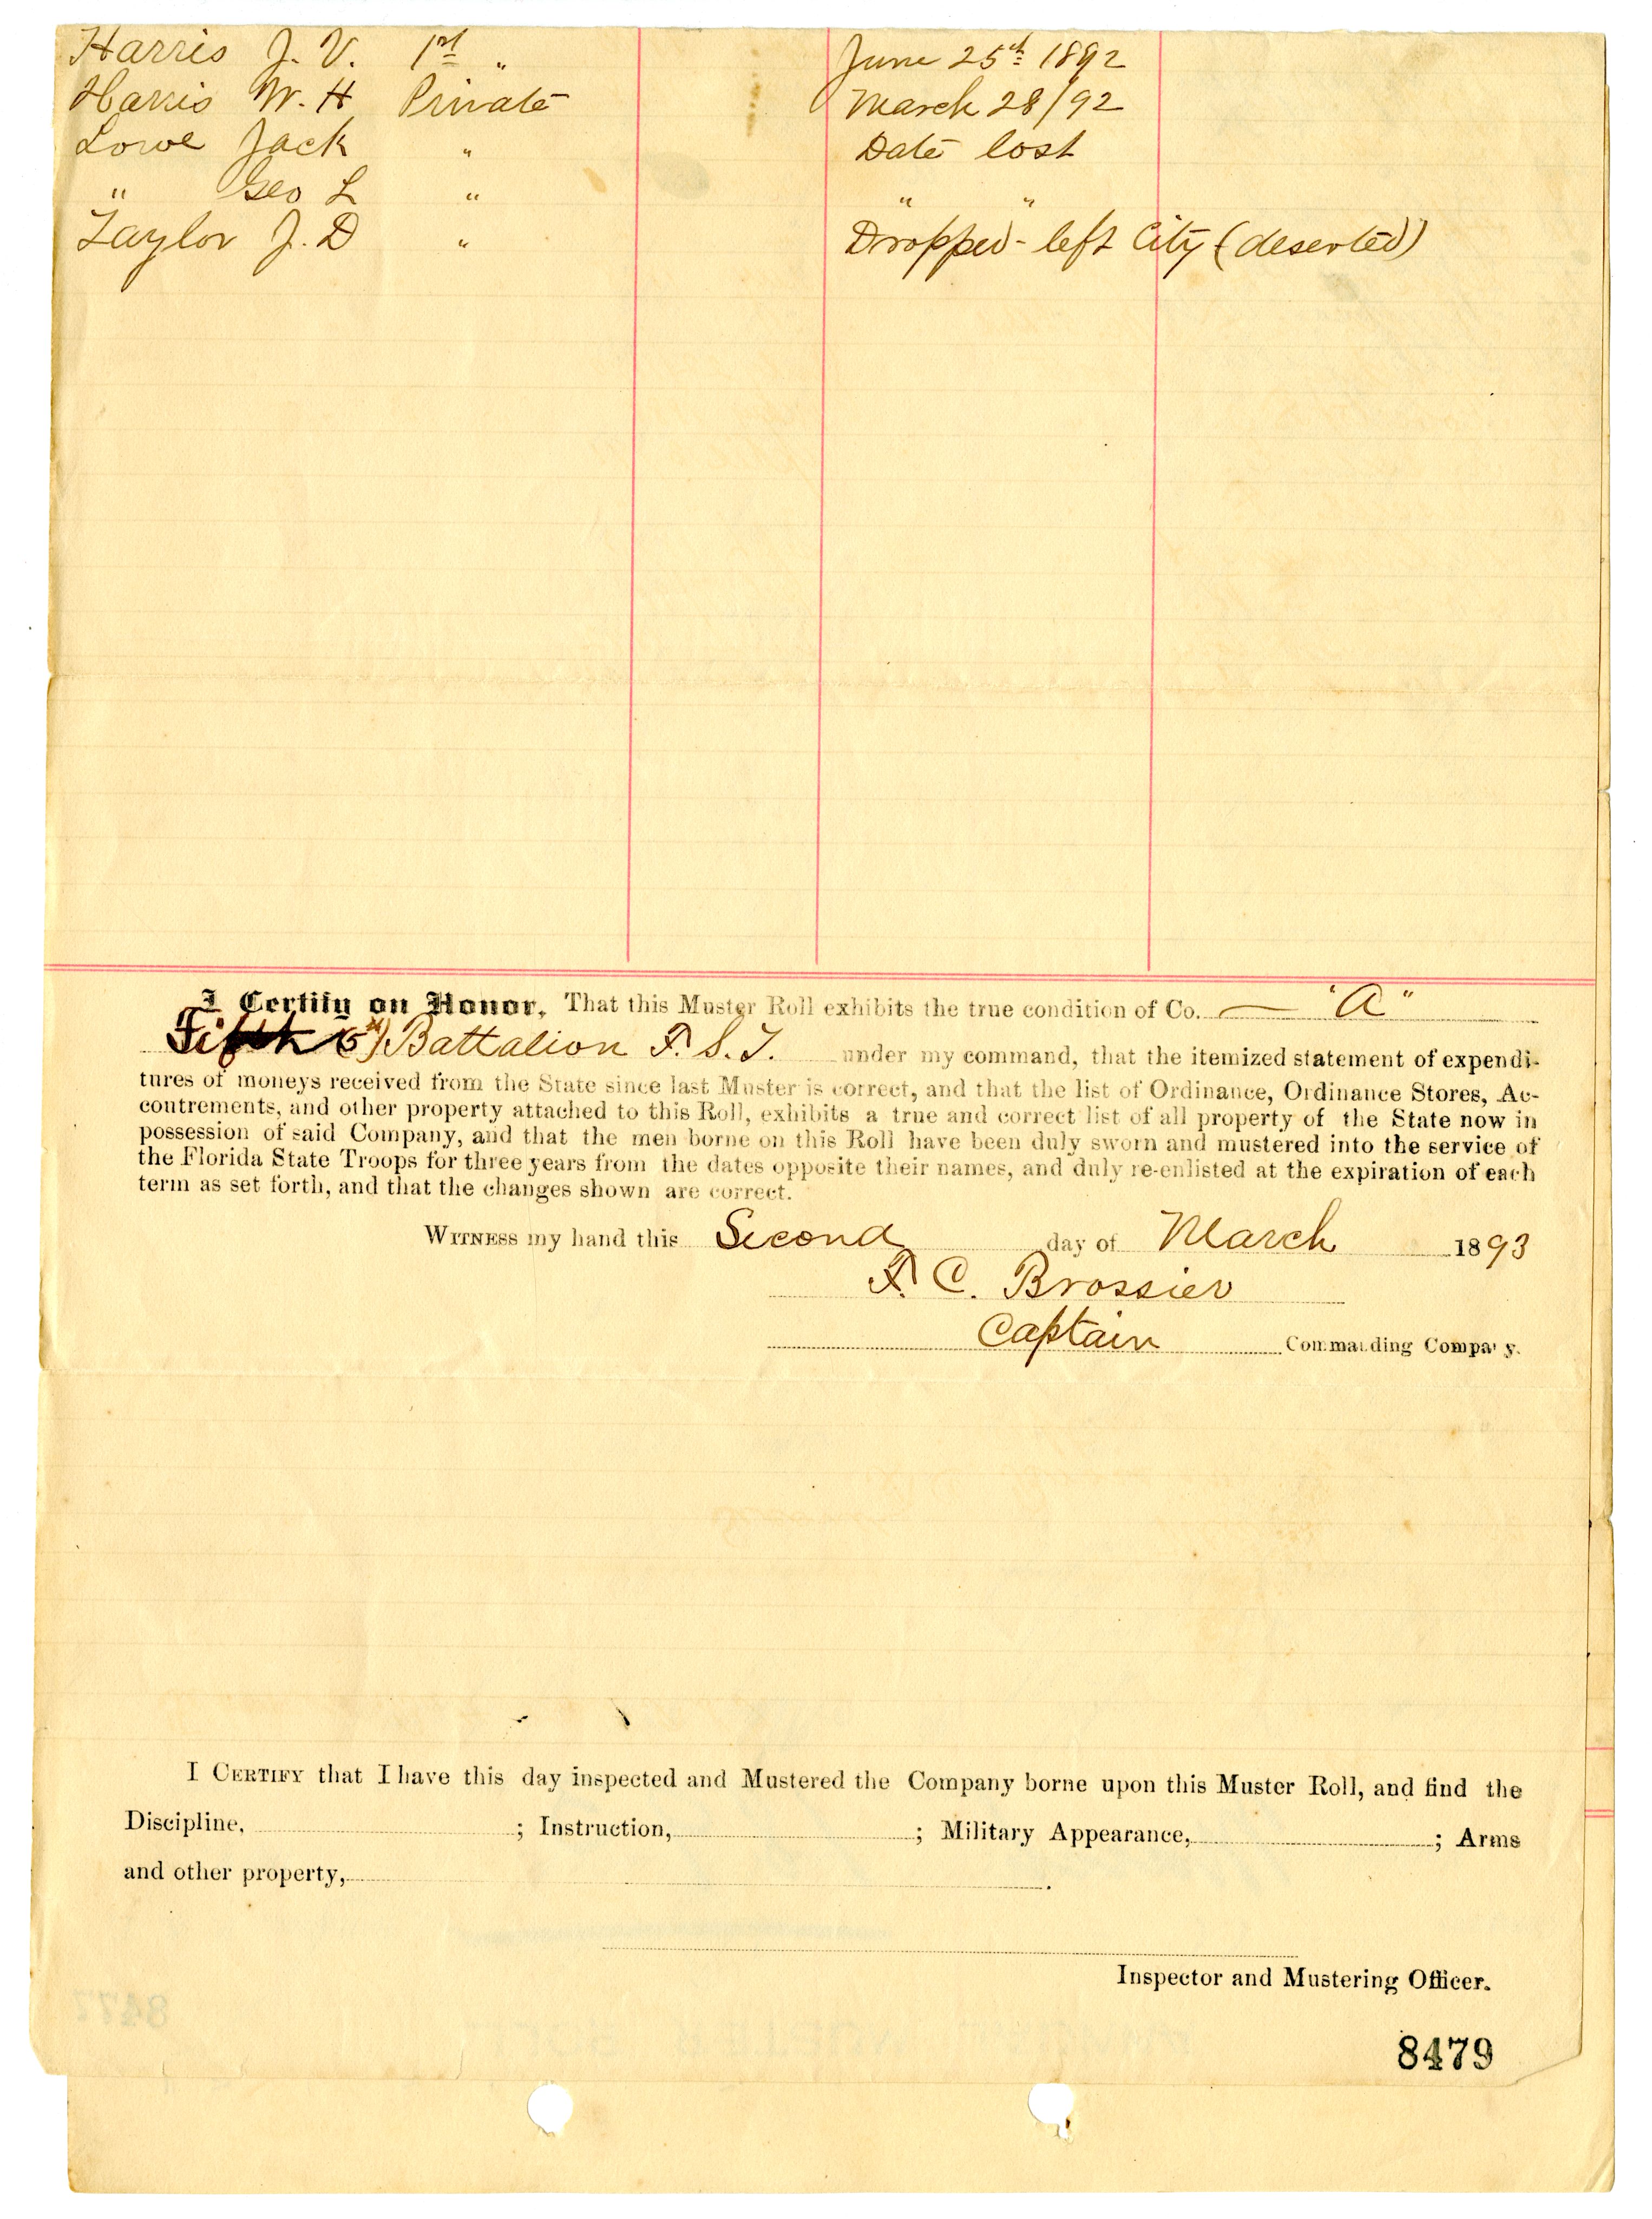 Harris J. V. 1st " June 25th 1892
Harris W. H Private March 28/92
Lowe Jack " Date lost
" Geo L " " "
Taylor J. D " Dropped - left City (deserted)
I Certify on Honor, That this Muster Roll exhibits the true condition of Co. — "A"
Battalion F. S. T. under my command, that the itemized statement of expendi-
tures of moneys received from the State since last Muster is correct, and that the list of Ordinance, Ordinance Stores, Ac-
coutrements, and other property attached to this Roll, exhibits a true and correct list of all property of the State now in
possession of said Company, and that the men borne on this Roll have been duly sworn and mustered into the service of
the Florida State Troops for three years from the dates opposite their names, and duly re-enlisted at the expiration of each
term as set forth, and that the changes shown are correct.
WITNESS my hand this Second day of March 1893
F. C. Brossier
Captain Commanding Company.
I CERTIFY that I have this day inspected and Mustered the Company borne upon this Muster Roll, and find the
Discipline, ; Instruction, ; Military Appearance, ; Arms
and other property, .
Inspector and Mustering Officer.
8479